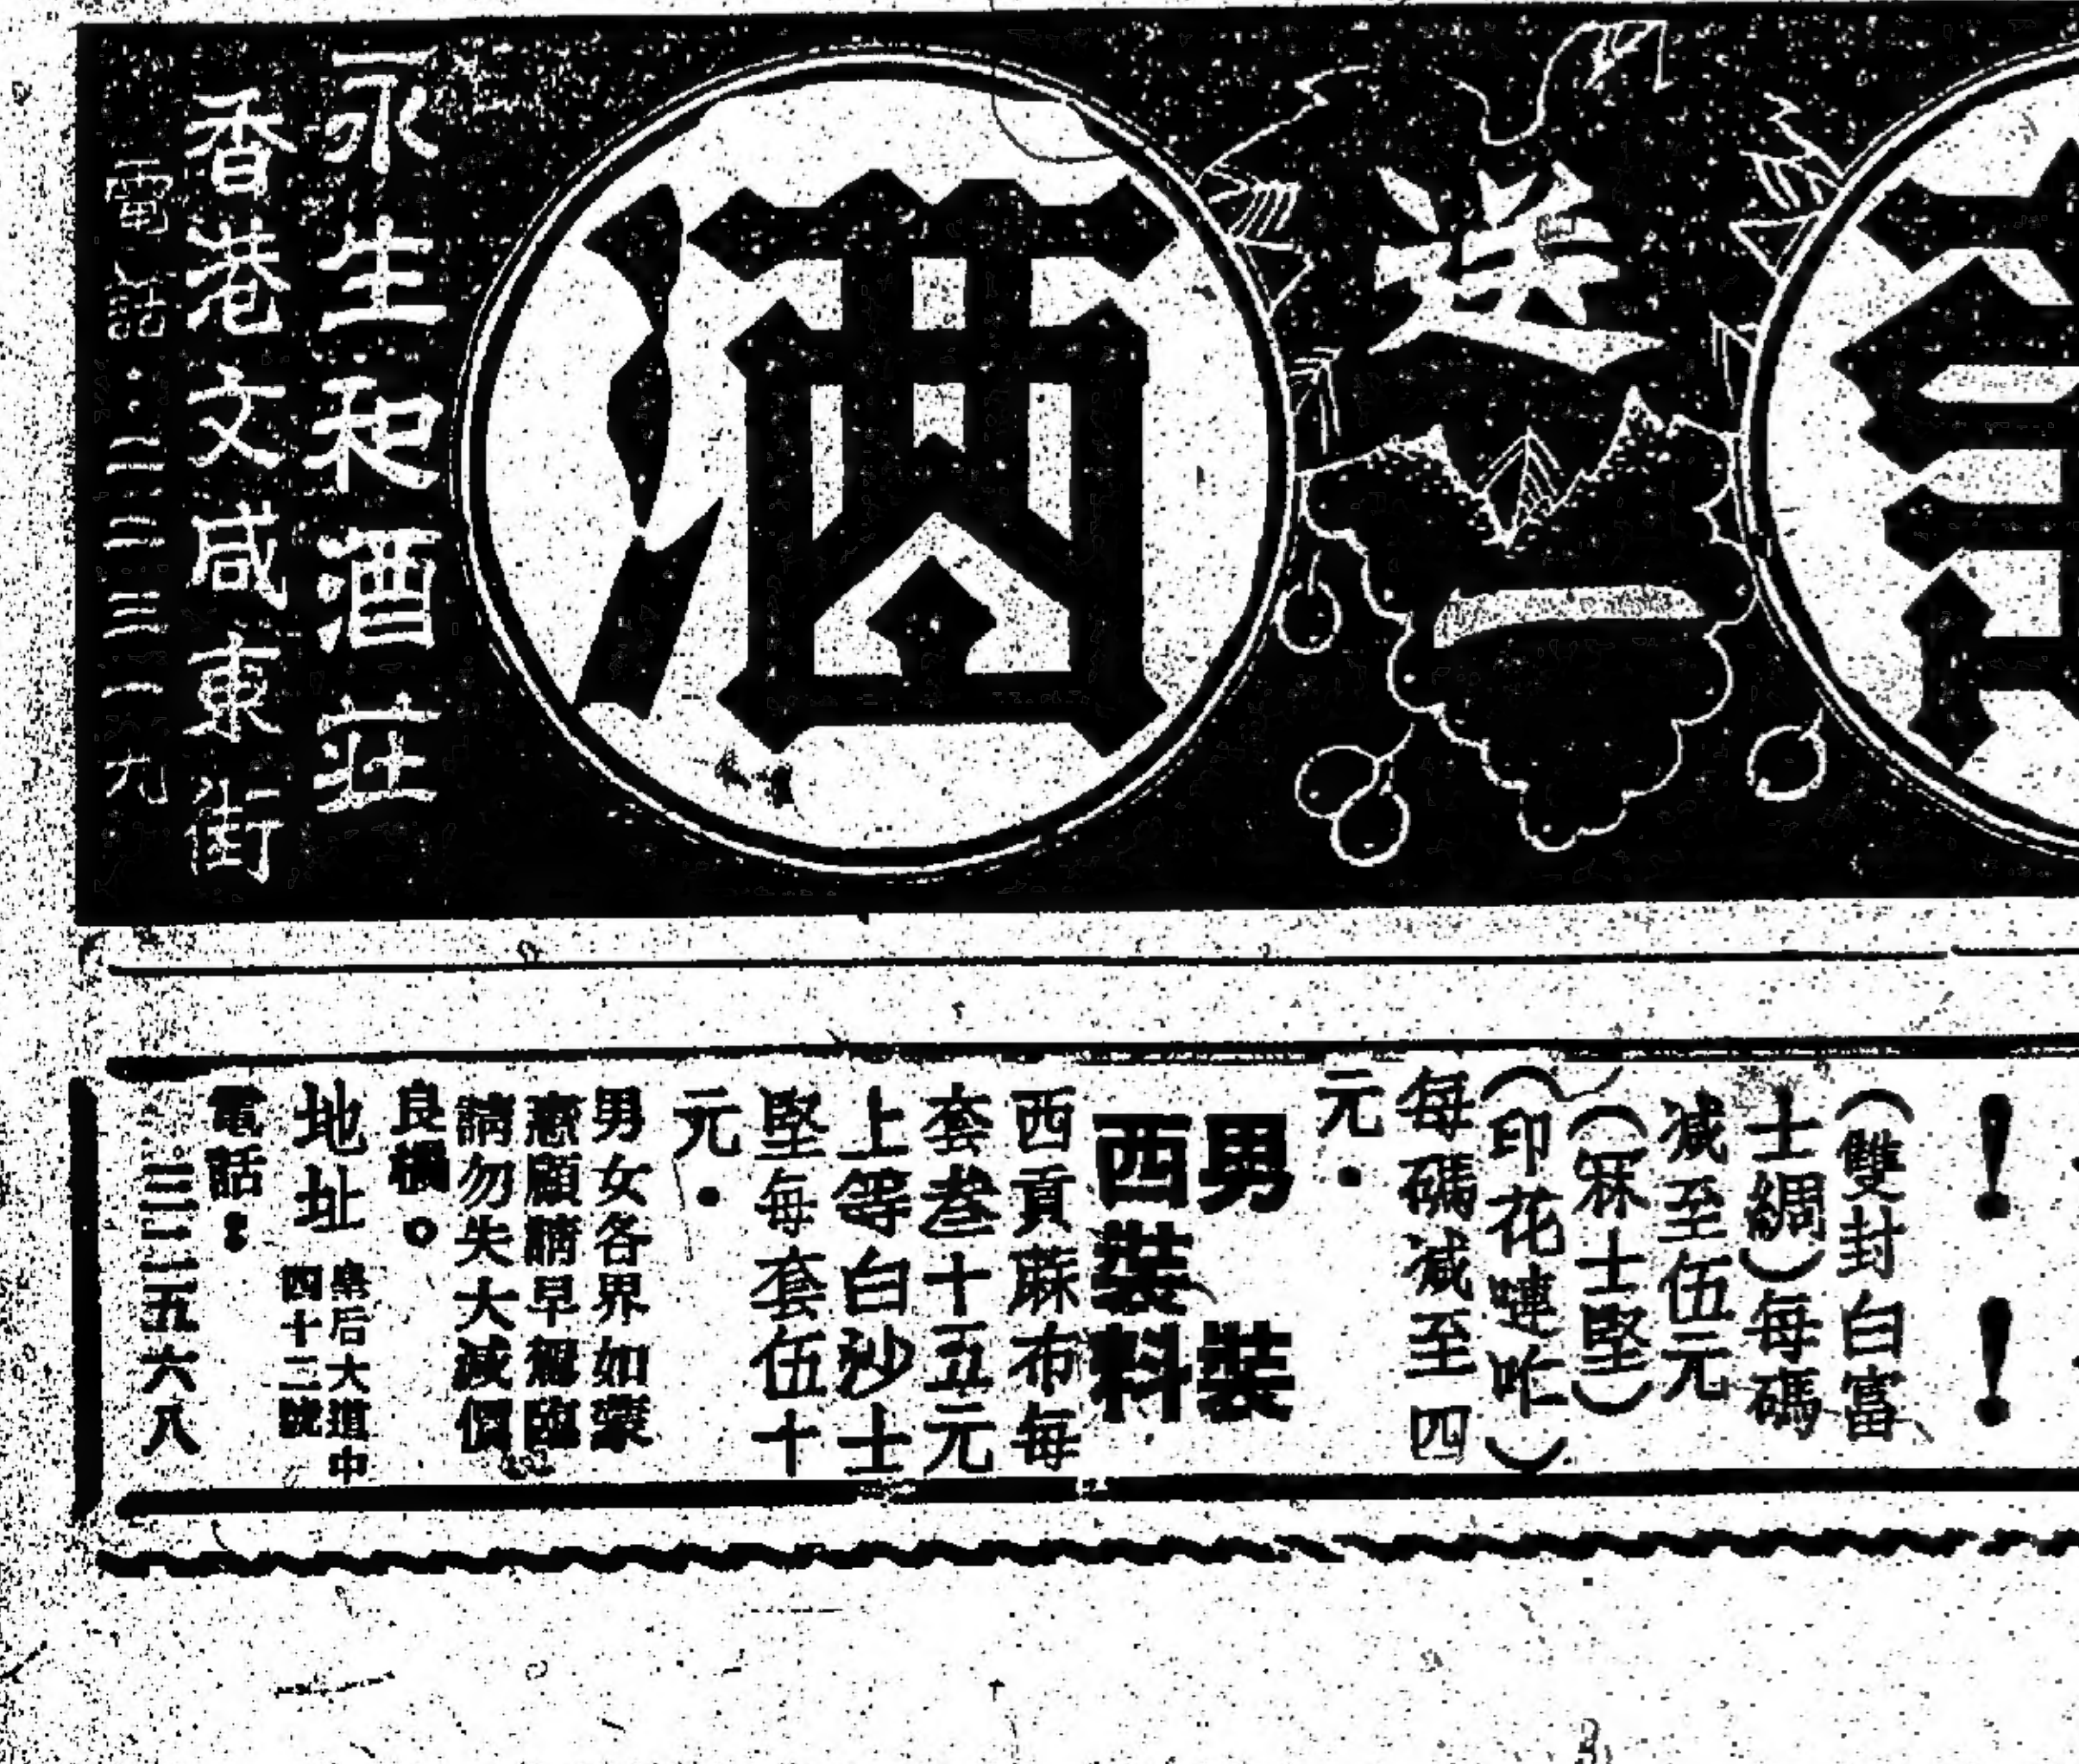 送一
酒
永生和酒莊
香港文咸東街
電話·二二三一九
！！
（雙封白富
士綢）每碼
減至伍元
（冧士堅）
（印花嗹咋）
每碼減至四
元·
男裝
西裝料
西貢蔴布每
套叁十五元
上等白沙士
堅每套伍十
元·
男女各界如蒙
惠顧請早駕臨
請勿失大減價
良機。
地址
皇后大道中
四十三號
電話：